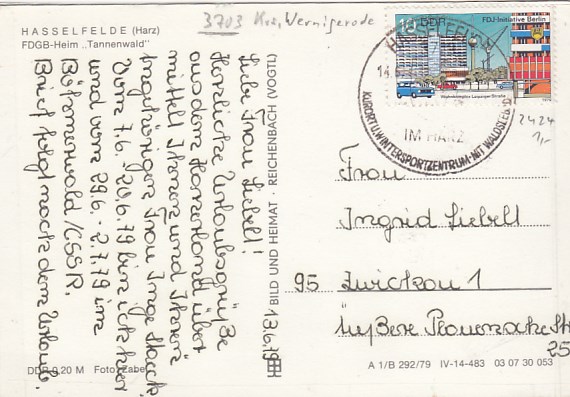 HASSELFELDE (Harz)
FDGB-Heim „Tannenwald"
3703 Krs. Wernigerode
13.6.79
Liebe Frau Liebelt!
Herzliche Urlaubsgrüße
aus dem Harzerland über
mittelt Ihnen und Ihren
Angehörigen Frau Inge Stark
Vom 7.6. - 20.6.79 bin ich hier
und vom 29.6. - 2.7.79 im
Böhmerwald / ČSSR.
Brief folgt nach dem Urlaub.
DDR 0,20 M Foto: Zabel
BILD UND HEIMAT · REICHENBACH (VOGTL)
DDR
FDJ-Initiative Berlin
Wohnkomplex Leipziger Straße
HASSELFELDE
IM HARZ
KURORT U. WINTERSPORTZENTRUM MIT WALDSEEBAD
2424
1,-
Frau
Ingrid Liebelt
95 Zwickau 1
Äußere Plauensche Str
25
A 1/B 292/79 IV-14-483 03 07 30 053